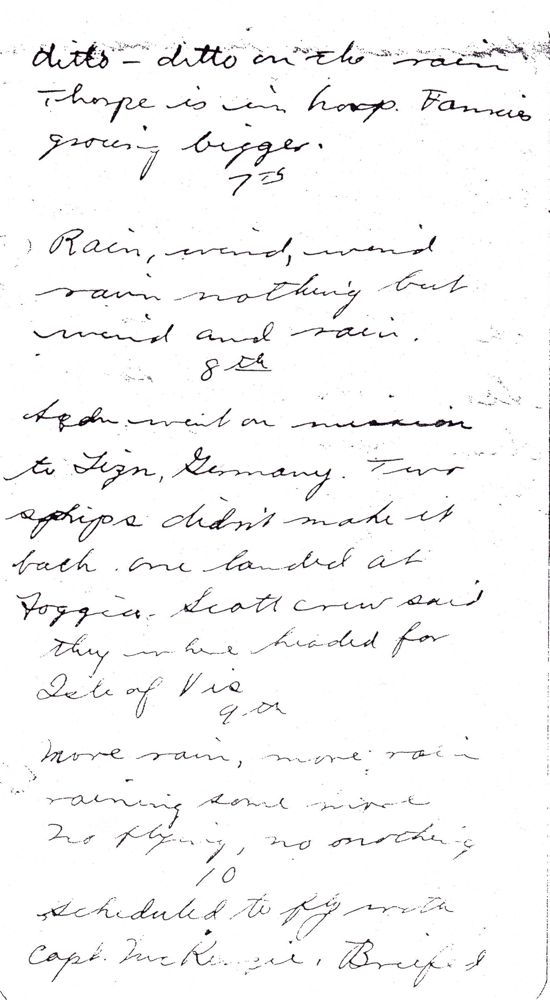 ditto - ditto on the rain
Thorpe is in hosp. Fannies
growing bigger.
7th
Rain, wind, wind
rain nothing but
wind and rain.
8th
Sqdn went on mission
to Linz, Germany. Two
ships didn't make it
back. one landed at
Foggia. Scott crew said
they where headed for
Isle of Vis
9th
More rain, more rain
raining some more
No flying, no onothing
10
scheduled to fly with
Capt. McKenzie. Briefed